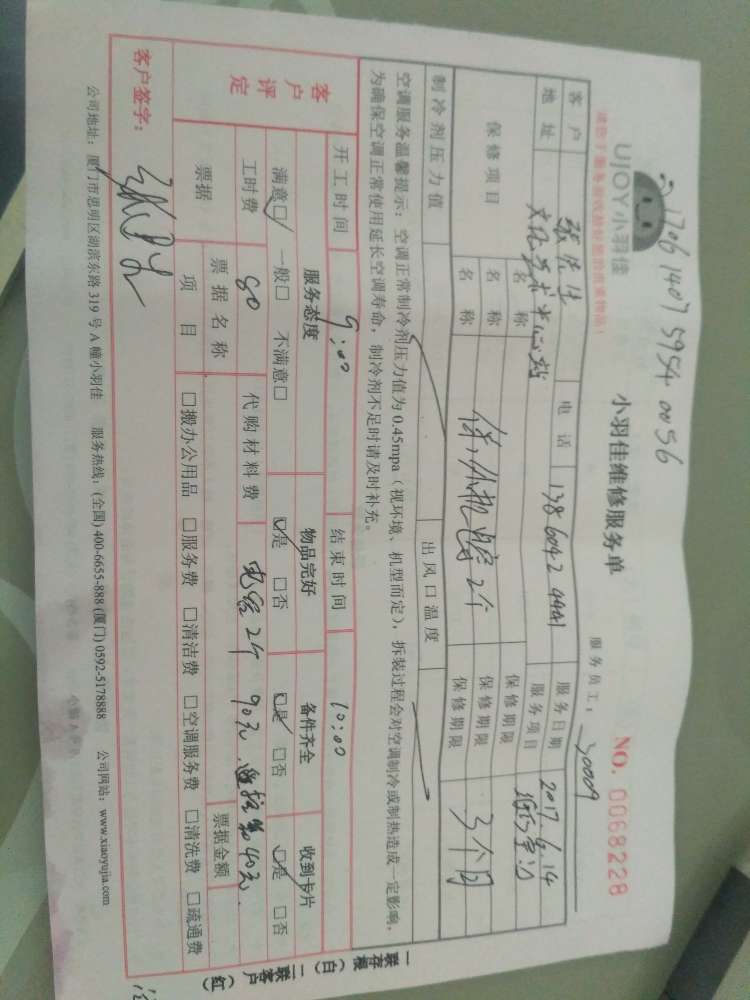 170614075954 0056
UJOY小羽佳
小羽佳维修服务单
NO. 0068228
服务员工: 30009
客户 张先生 电话 138 6042 4941 服务日期 2017.6.14
地址 文化艺术中心站 服务项目
保修项目 名称 保修期限
名称 保修期限
名称 保修期限 3个月
制冷剂压力值 出风口温度
空调服务温馨提示: 空调正常制冷剂压力值为0.45mpa(视环境、机型而定), 拆装过程会对空调制冷或制热造成一定影响,
为确保空调正常使用延长空调寿命, 制冷剂不足时请及时补充。
开工时间 9:00 结束时间 10:00
客户评定 服务态度 物品完好 备件齐全 收到卡片
满意□ 一般□ 不满意□ □是 □否 □是 □否 □是 □否
工时费 80 代购材料费 电容2个 90元, 遥控 40元.
票据 票据名称 票据金额
项目 □搬办公用品 □服务费 □清洁费 □空调服务费 □清洗费 □疏通费
客户签字:
公司地址: 厦门市思明区湖滨东路319号A幢小羽佳 服务热线: (全国) 400-6655-888 (厦门) 0592-5178888 公司网站: www.xiaoyujia.com
一联存根(白) 二联客户(红)